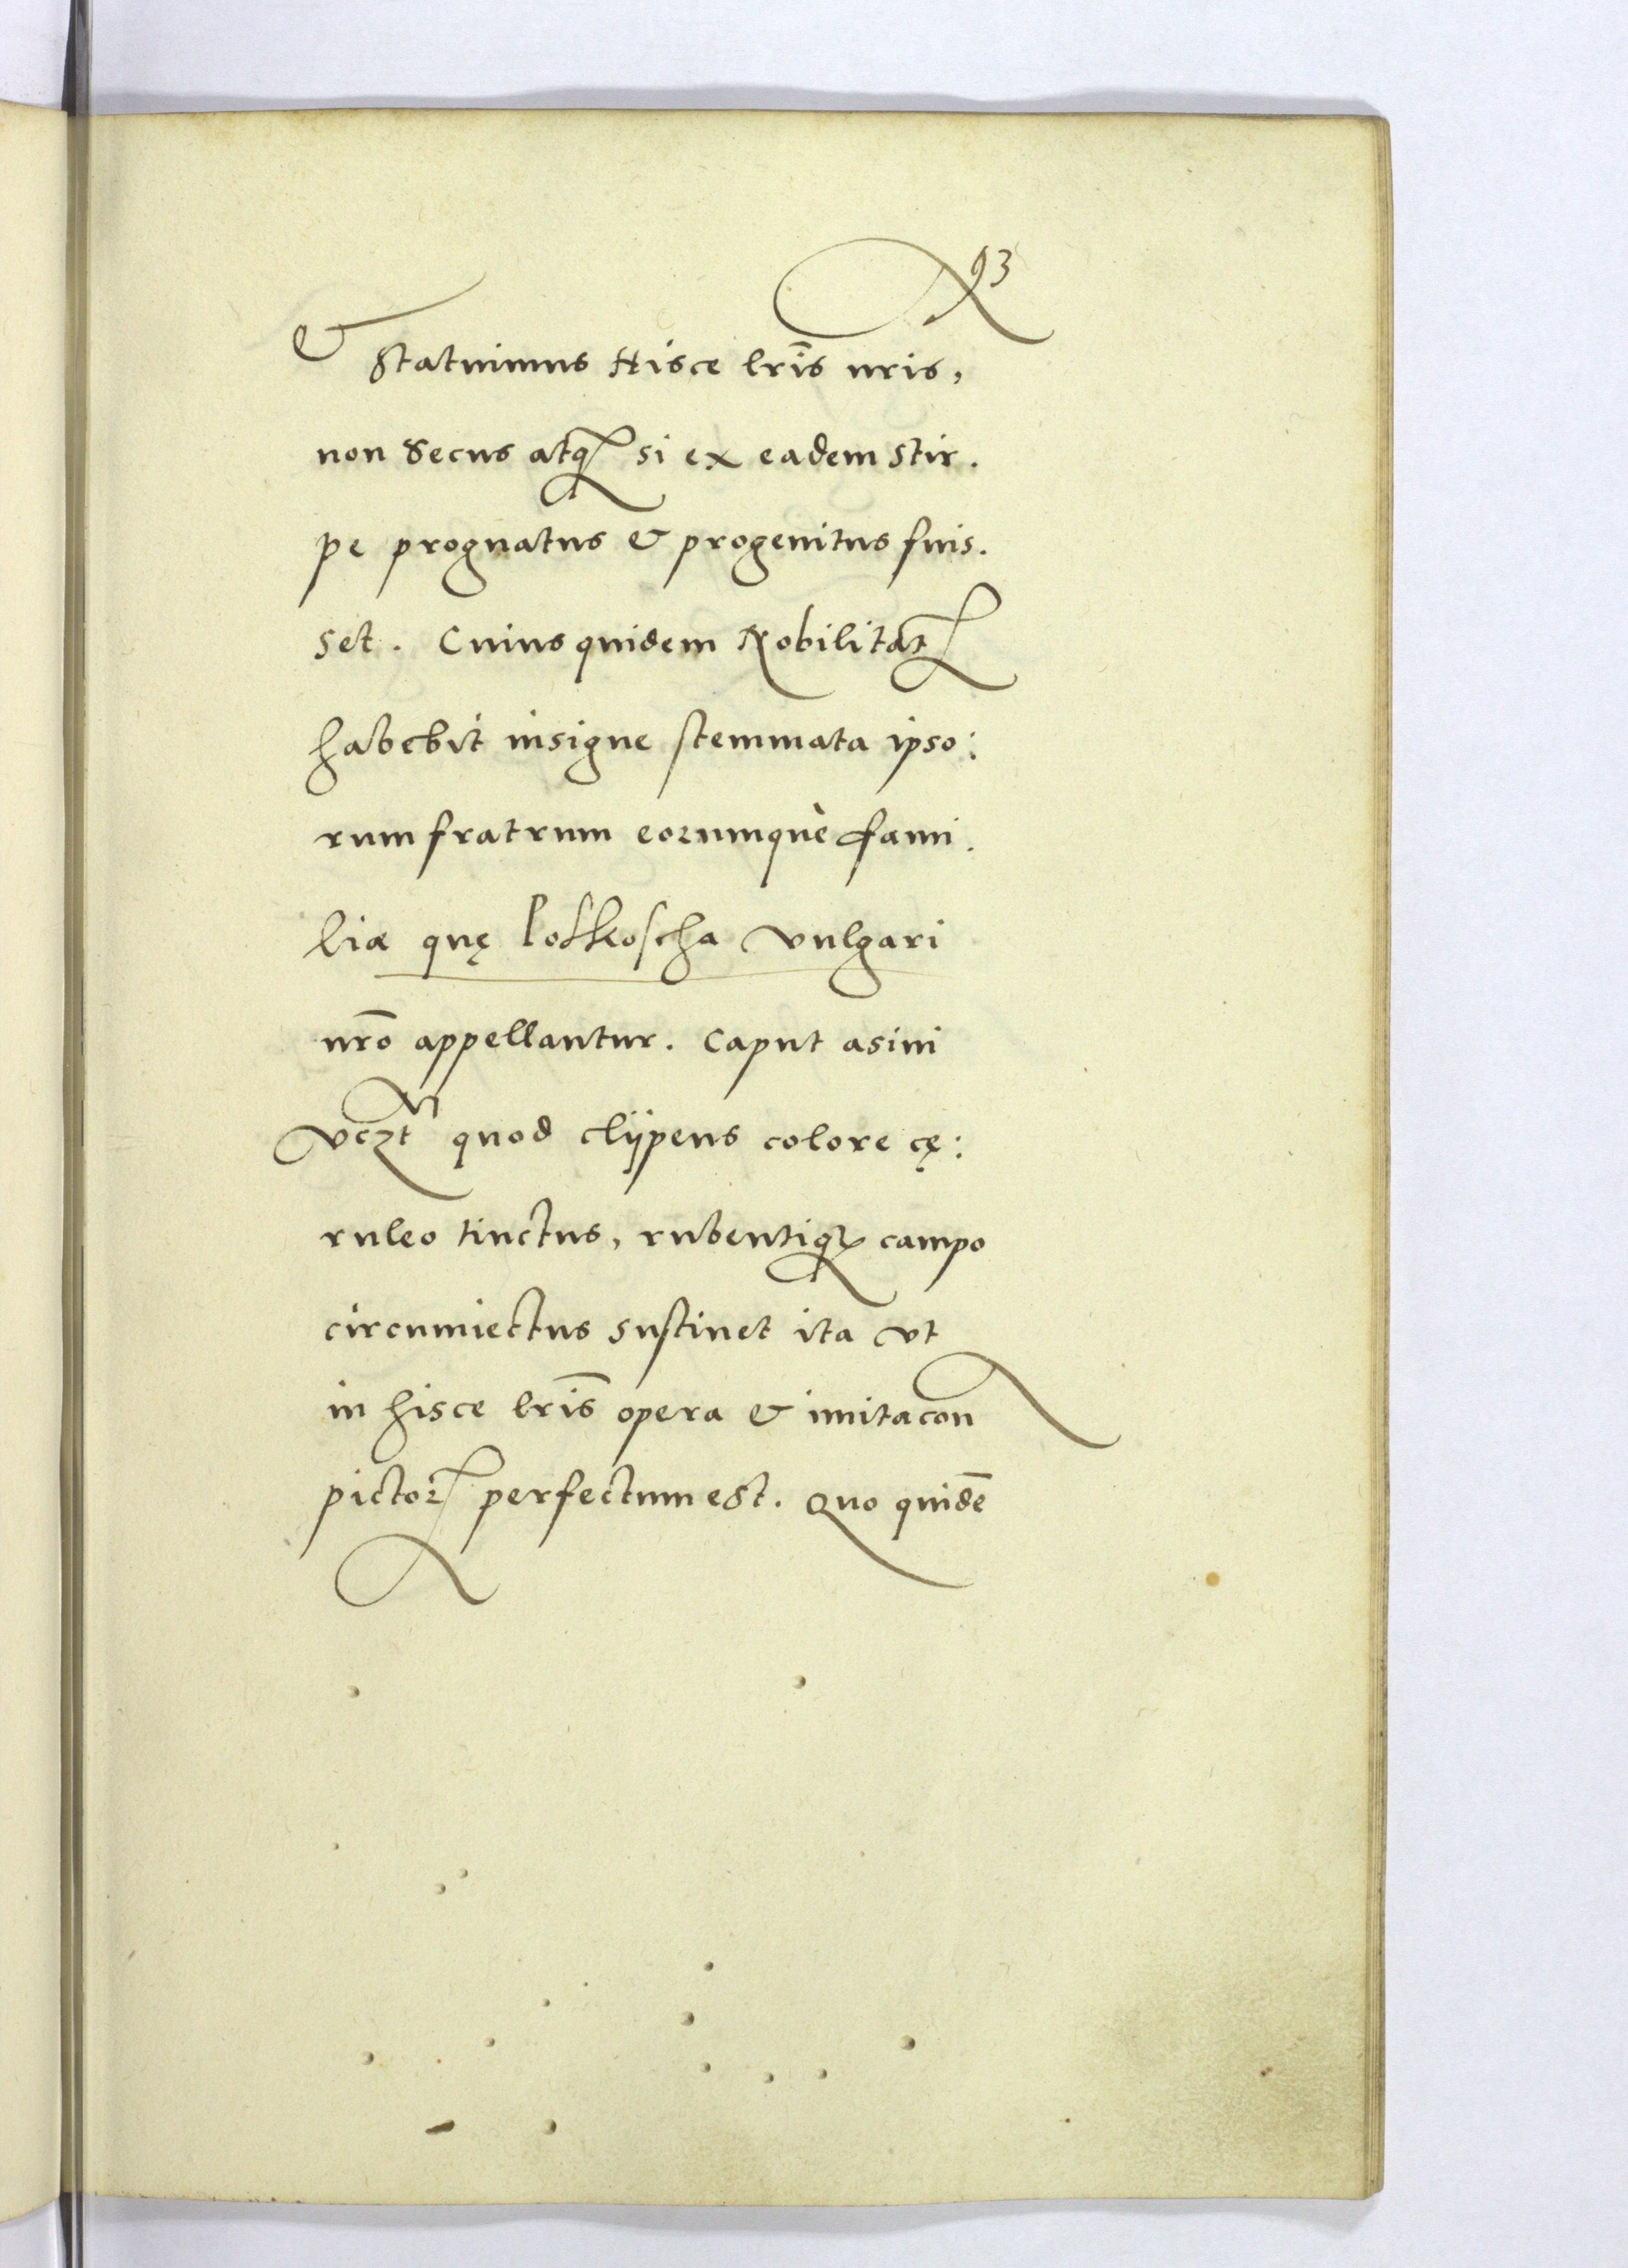 93
& Statuimus Hisce lris̄ nris,
non secus atq si ex eadem stir.
pe prognatus & progenitus fuis.
set. Cuius quidem Nobilitat
habebit insigne stemmata ipso:
rum fratrum eorumquè fami.
liæ quę Poſkoscha vulgari
nrō appellantur. Caput asini
vczt quod clijpeus colore cę:
ruleo tinctus, rubentiq campo
circumiectus sustinet ita vt
in hisce lris̄ opera & imitacon
pictor perfectum est. Quo quidē